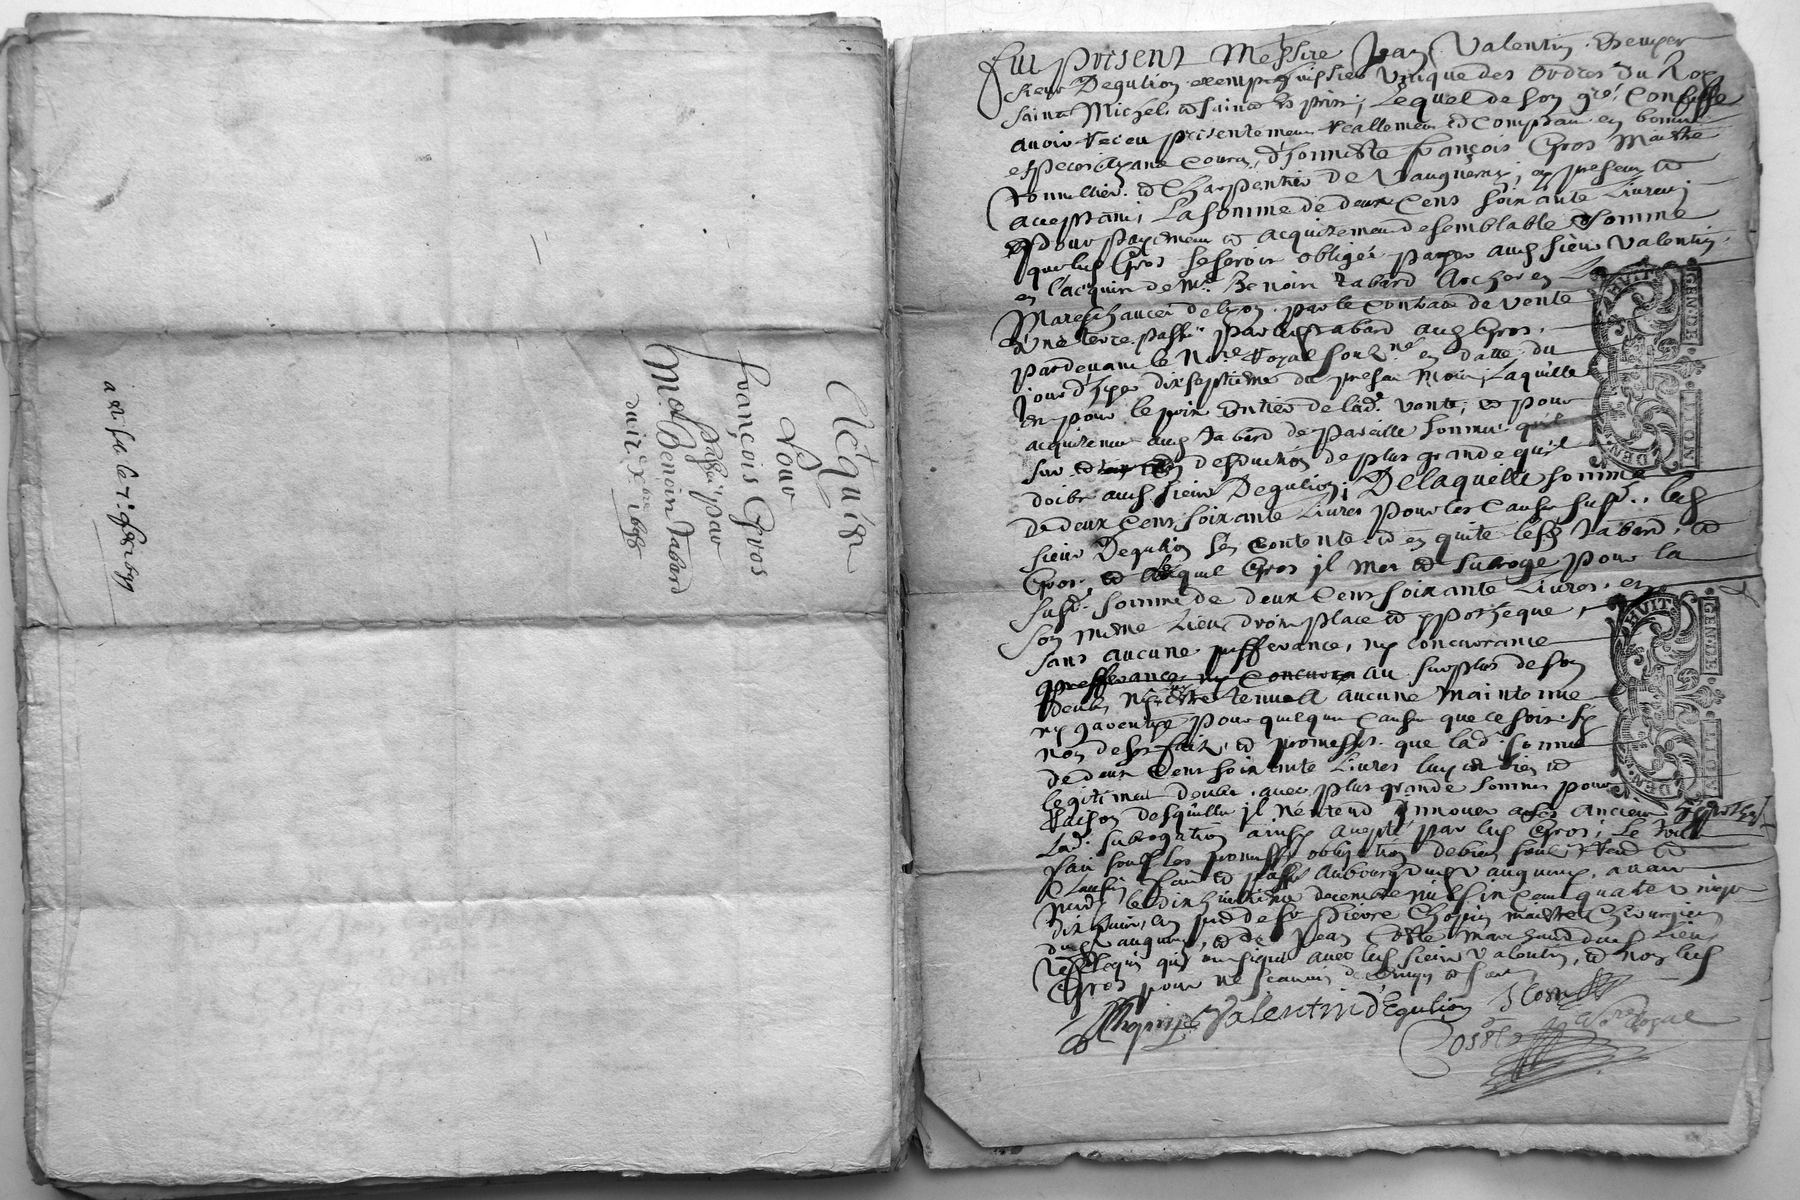 Acquit
Pour
François Gros
passé par
Mr Benoit Tabard
du 18e Xbre 1698
Fut present Messire Jean Valentin
sieur Degulion unique des ordres du Roy
saint Michel et lequel de son gré confesse
avoir receu presentement reallement et comptant en bonnes
especes ayant cours, d'honneste françois Gros Maistre
tonnellier et Charpentier de Vaugneray, present et
acceptant, La somme de deux Cens soixante Livres;
Et pour payement et acquitement de semblable somme
que led Gros se seroit obligé payer aud sieur Valentin
en l'acquit de Mr Benoit Tabard Archer en
Mareschaucée de Lyon par le contract de vente
d'une terre passé par led Tabard aud Gros
pardevant le Nore Royal soubzné en datte du
jour d'hyer dixseptieme du present mois, Laquelle
est pour le prix entier de lad. vente, et pour
acquitement aud Tabard de pareille somme qu'il
sur et desduction de plus grande qu'il
doibt aud sieur Degulion; De laquelle somme
de deux Cens soixante Livres pour les causes susd. led
sieur Degulion s'en contente et en quite lesd Tabard et
Gros, et lequel Gros il met et subroge pour la
susd. somme de deux Cens soixante Livres en
son mesme Lieu droit place et yppotheque,
sans aucune preferance, ny concurrance
au surplus de son
deub, ny estre tenu a aucune maintenue
ny garentye pour quelque cause que ce soit sy
non de ses faits, et promesses que lad. somme
de deux Cens soixante Livres luy est bien et
legitimement deube, avec plus grande somme pour
raison desquelles il n'entend innover a ses anciens yppotheques
Lad. subrogation ainsy accepté par led Gros, Le tout
fait soubz les promesses obligation de biens
Clauses fait et passé au bourg dud Vaugneray, avant
midy le dix huictieme decembre mil six cens quatre vingt
dix huit, en pnce de sr Pierre Chopin maistre Chirurgien
dud Vaugneray, et de Jean Coste marchand dud Lieu
tesmoins qui ont signé avec led sieur Valentin, et non led
Gros pour ne scavoir de ce enquis et
Chopin Valentin d'Egulion J Coste
Coste Nore Royal
HUIT DEN.
GEN DE LION
HUIT DEN.
GEN DE LION